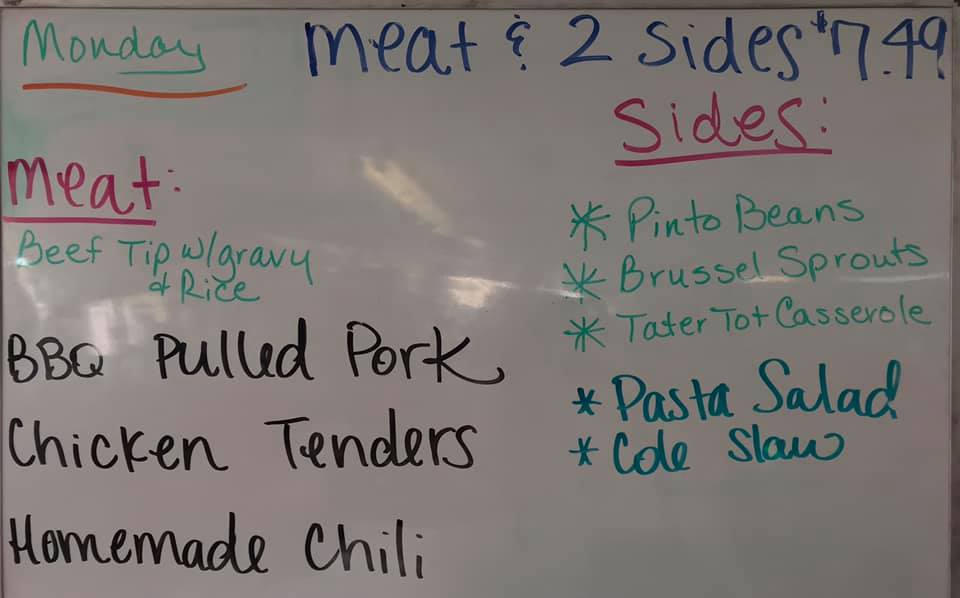 Monday
Meat & 2 Sides $7.49
Meat:
Beef Tip w/gravy
& Rice
BBQ Pulled Pork
Chicken Tenders
Homemade Chili
Sides:
* Pinto Beans
* Brussel Sprouts
* Tater Tot Casserole
* Pasta Salad
* Cole Slaw